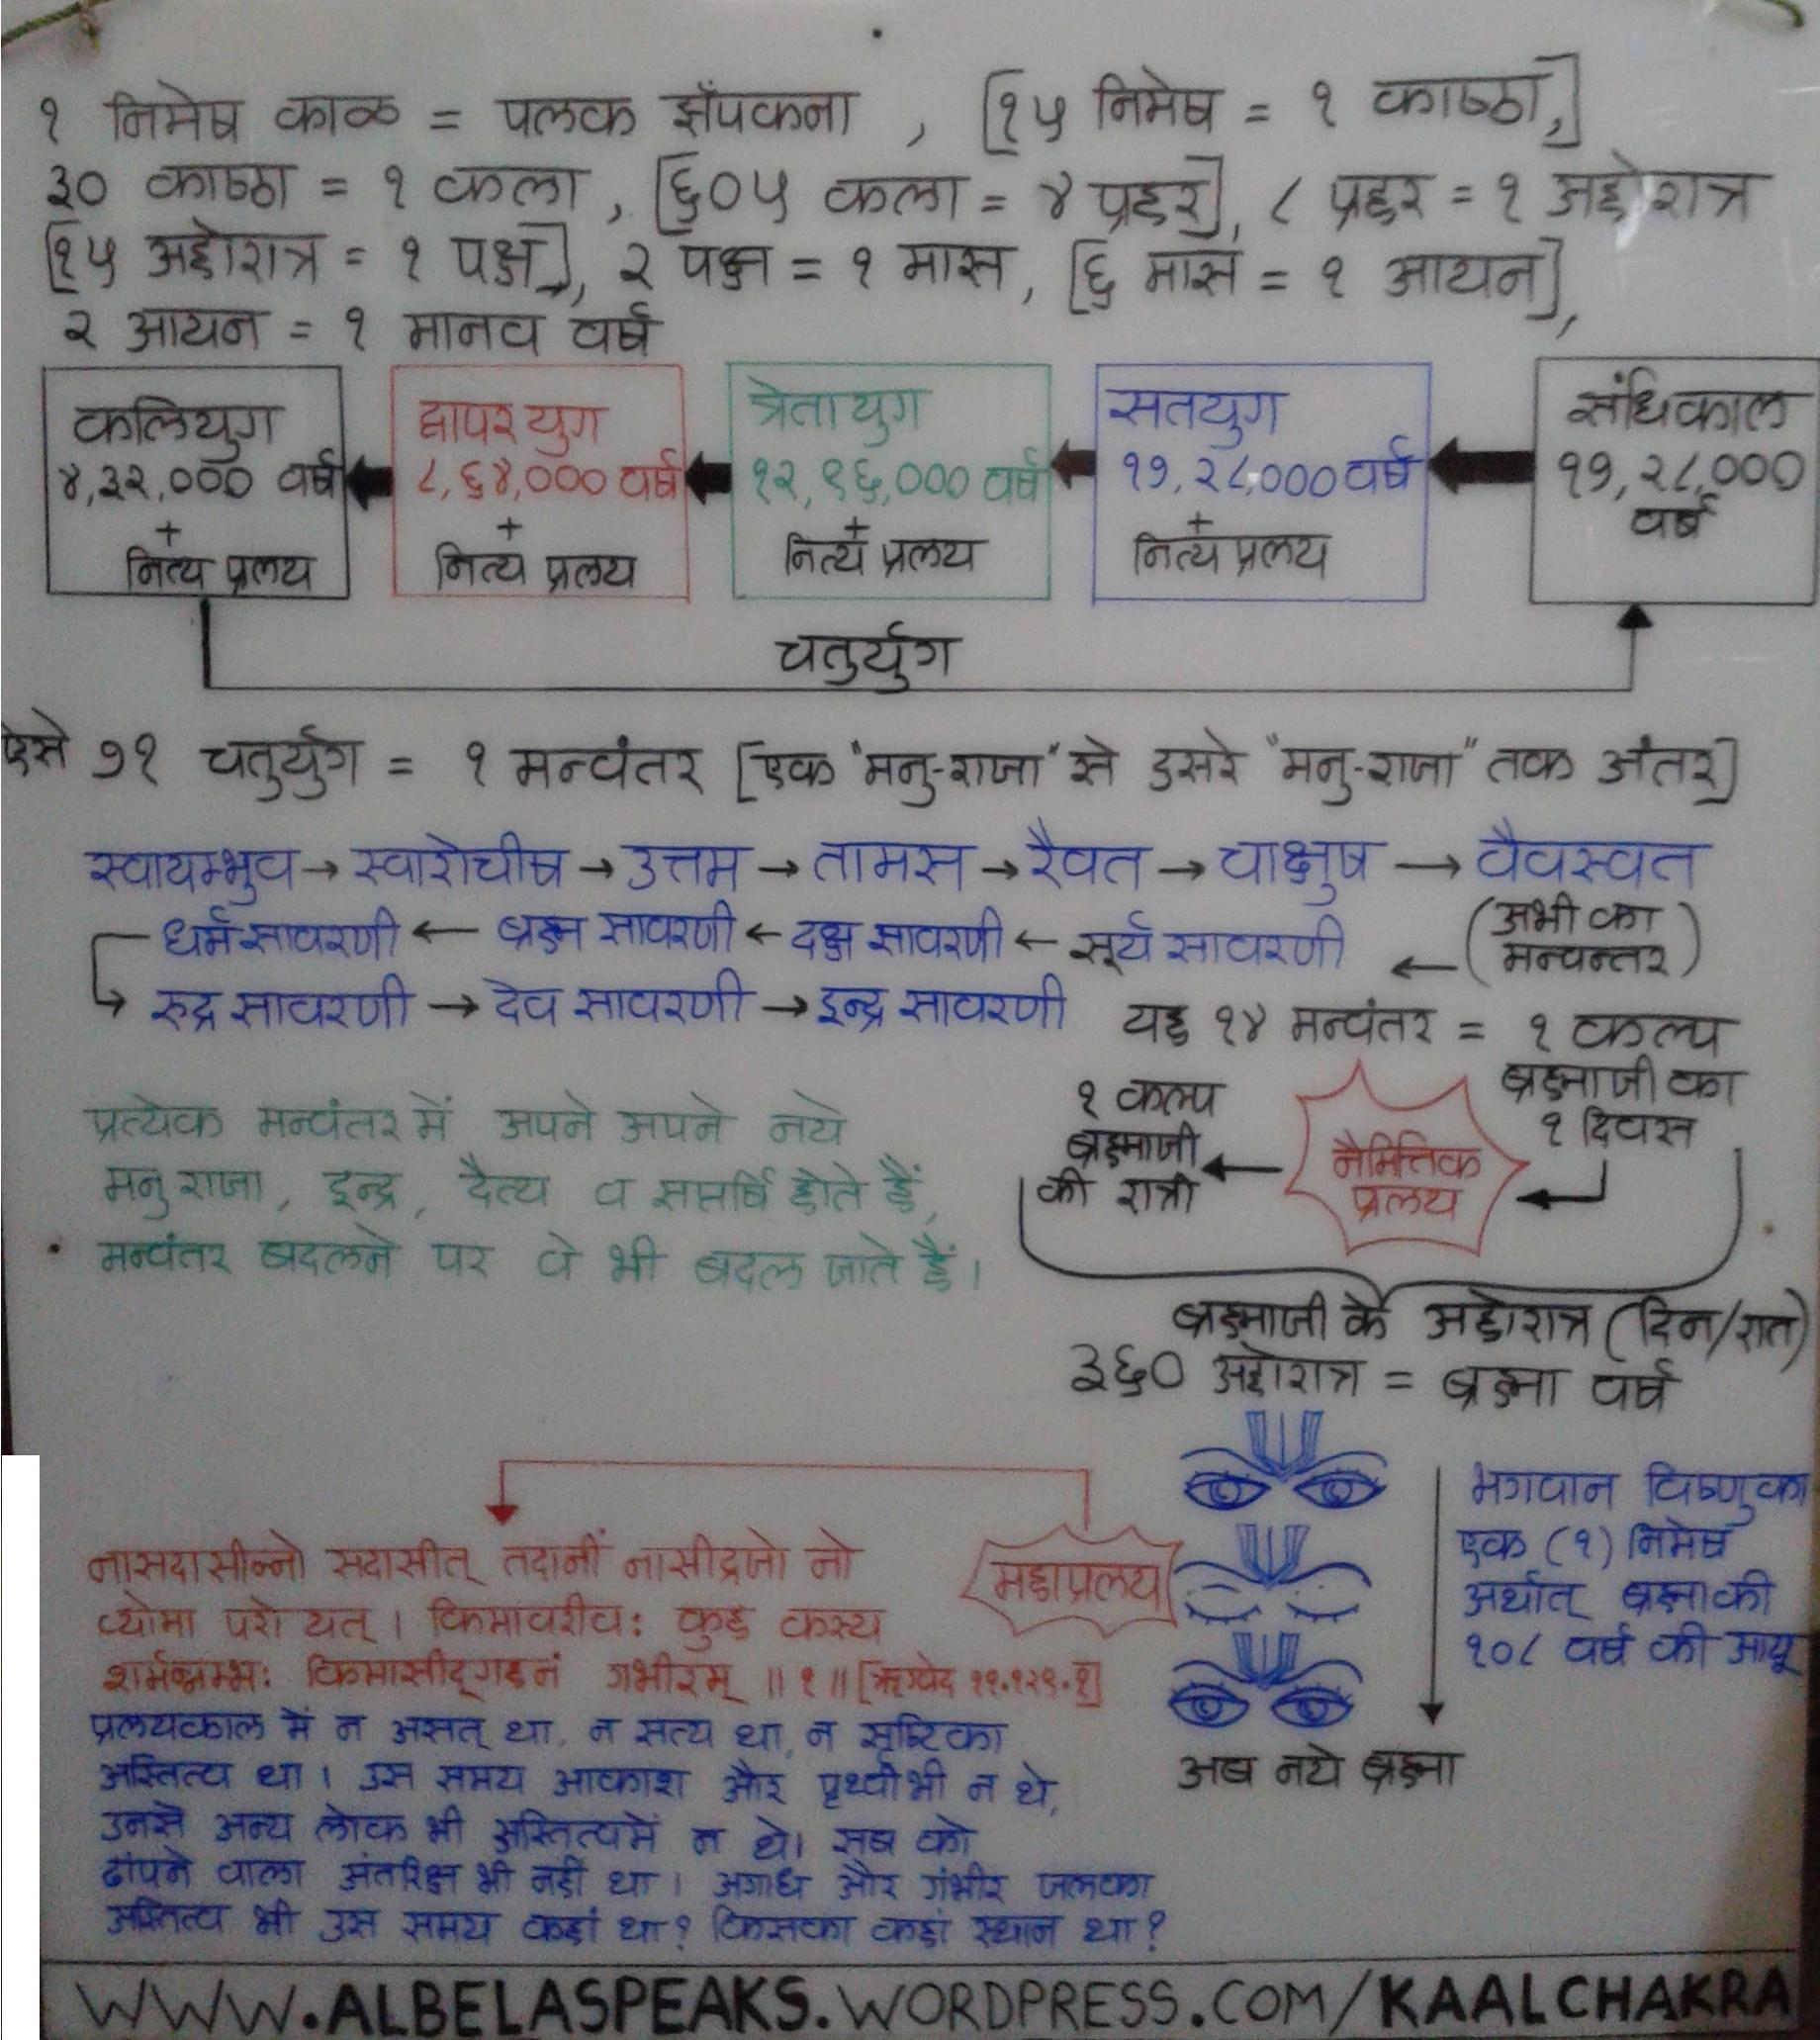 १ निमेष काळ = पलक झँपकना , [१५ निमेष = १ काष्ठा,]
३० काष्ठा = १ कला , [६०५ कला = ४ प्रहर], ८ प्रहर = १ अहोरात्र
[१५ अहोरात्र = १ पक्ष], २ पक्ष = १ मास, [६ मास = १ आयन],
२ आयन = १ मानव वर्ष
कलियुग
४,३२,००० वर्ष
+
नित्य प्रलय
द्वापर युग
८,६४,००० वर्ष
+
नित्य प्रलय
त्रेतायुग
१२,९६,००० वर्ष
+
नित्य प्रलय
सतयुग
१७,२८,००० वर्ष
+
नित्य प्रलय
संधिकाल
१७,२८,०००
वर्ष
चतुर्युग
ऐसे ७१ चतुर्युग = १ मन्वंतर [एक "मनु-राजा" से दुसरे "मनु-राजा" तक अंतर]
स्वायम्भुव → स्वारोचीष → उत्तम → तामस → रैवत → चाक्षुष → वैवस्वत
(अभी का
मन्वन्तर)
धर्म सावरणी ← ब्रह्म सावरणी ← दक्ष सावरणी ← सूर्य सावरणी ←
रुद्र सावरणी → देव सावरणी → इन्द्र सावरणी
यह १४ मन्वंतर = १ कल्प
ब्रह्माजी का
१ दिवस
नैमित्तिक
प्रलय
१ कल्प
ब्रह्माजी
की रात्री
प्रत्येक मन्वंतर में अपने अपने नये
मनु राजा, इन्द्र, दैत्य व सप्तर्षि होते हैं,
मन्वंतर बदलने पर वे भी बदल जाते हैं।
ब्रह्माजी के अहोरात्र (दिन/रात)
३६० अहोरात्र = ब्रह्मा वर्ष
भगवान विष्णुका
एक (१) निमेष
अर्थात् ब्रह्माकी
१०८ वर्ष की आयू
महाप्रलय
अब नये ब्रह्मा
नासदासीन्नो सदासीत् तदानीं नासीद्रजो नो
व्योमा परो यत् । किमावरीवः कुह कस्य
शर्मन्नम्भः किमासीद्गहनं गभीरम् ॥ १ ॥ [ऋग्वेद ११.१२९.१]
प्रलयकाल में न असत् था, न सत्य था, न सृष्टिका
अस्तित्व था। उस समय आकाश और पृथ्वी भी न थे,
उनसे अन्य लोक भी अस्तित्वमें न थे। सब को
ढांपने वाला अंतरिक्ष भी नहीं था। अगाध और गंभीर जलका
अस्तित्व भी उस समय कहां था? किसका कहां स्थान था?
WWW.ALBELASPEAKS.WORDPRESS.COM/KAALCHAKRA